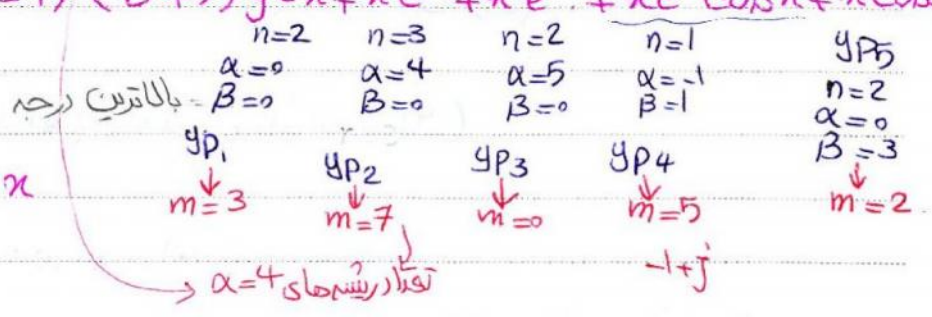 n=2 n=3 n=2 n=1 yp5
α=0 α=4 α=5 α=-1 n=2
بالاترین درجه β=0 β=0 β=0 β=1 α=0
yp1 yp2 yp3 yp4 β=3
x m=3 m=7 m=0 m=5 m=2
تعداد ریشه‌های α=4 -1+j